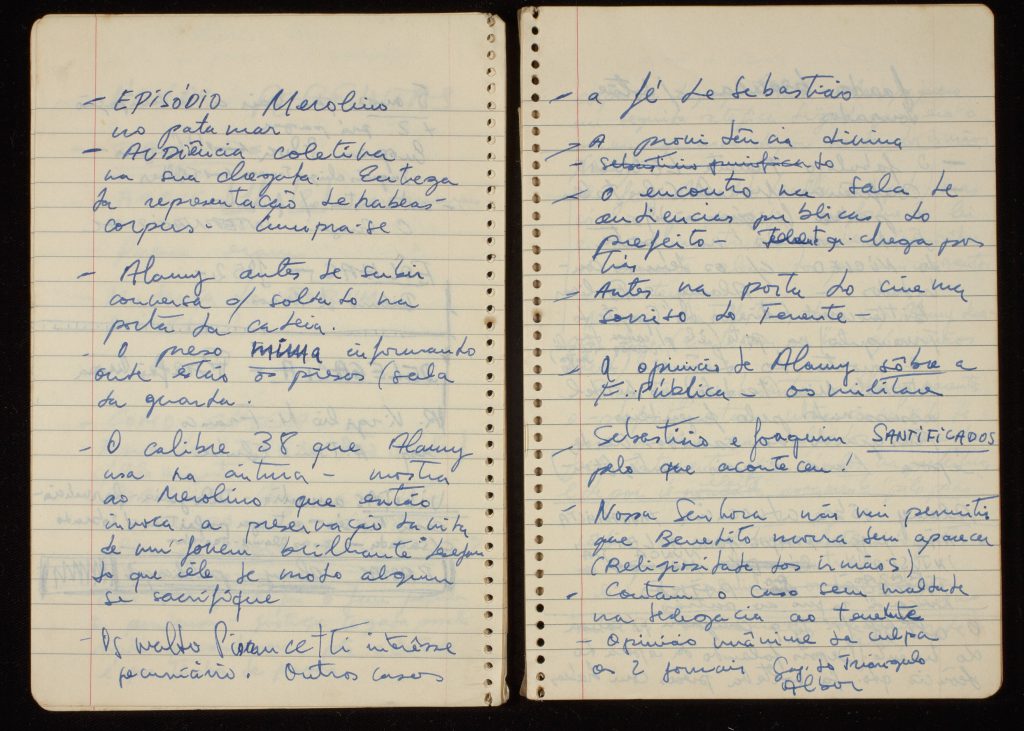 - EPISÓDIO Merolino
no patamar
- AUDIência coletiva
na sua chegada. Entrega
da representação de habeas-
corpus - Cumpra-se
- Alamy antes de subir
conversa c/ soldado na
porta da cadeia.
- O preso informando
onde estão os presos (sala
da guarda.
- O calibre 38 que Alamy
usa na cintura - mostra
ao Merolino que então
invoca a preservação da vida
de um "jovem brilhante"
do que êle de modo algum
se sacrifique
- Oswaldo Pierucetti interêsse
pecuniário. Outros casos
- a fé de Sebastião
- A providência divina
- Sebastião purificado
- O encontro na sala de
audiencias publicas do
prefeito - chega por
trás
- Antes na porta do cinema
sorriso do Tenente -
- A opinião de Alamy sôbre a
F. Pública - os militares
- Sebastião e Joaquim SANTIFICADOS
pelo que aconteceu!
- Nossa Senhora não vai permitir
que Benedito morra sem aparecer
(Religiosidade dos irmãos)
- Contam o caso sem maldade
na delegacia ao tenente
- Opinião unânime da culpa
os 2 jornais Gaz. do Triângulo